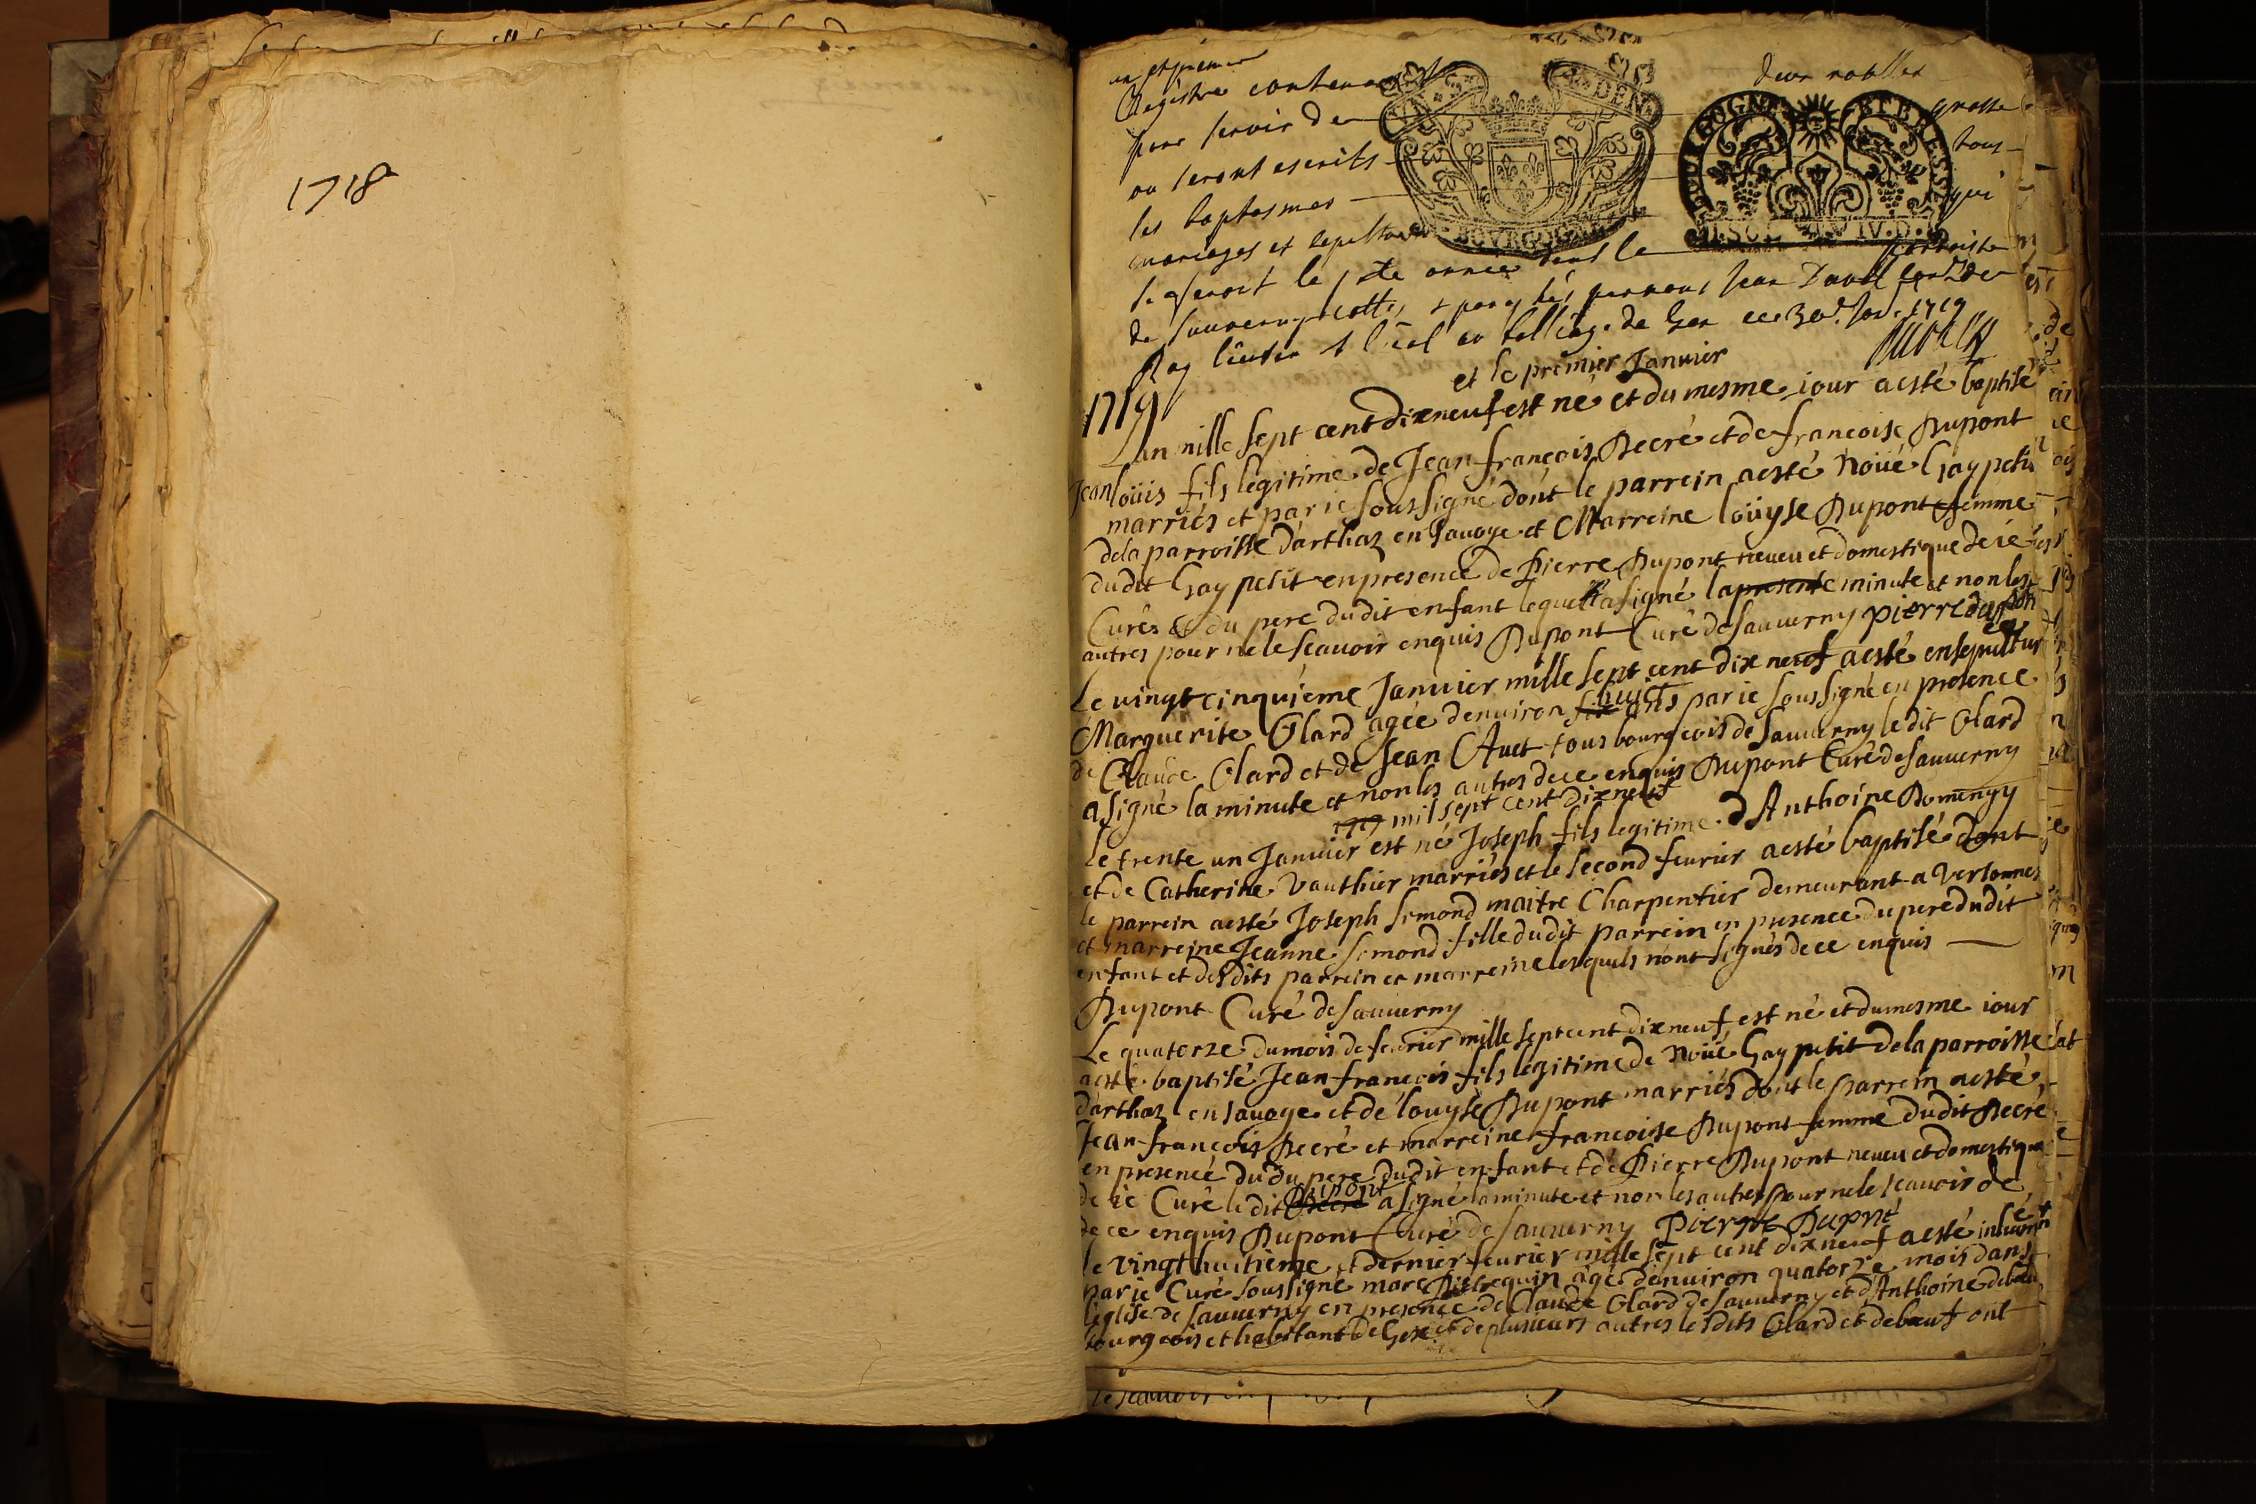 1718
un et premier
Registre contenant deux roolles
pour servir de grosse
ou seront escrits tous
les baptesmes qui
mariages et sepultures
se feront la pnte année dans la parroisse
de Sauverny cottés et paraphés par nous Jean
Roy au balliage de Gex ce 30e 1719
GEN.
BOVRGOGNE
BOVRGOGNE ET BRESSE
I.SOL IV.D.
1719
et le premier Janvier
Lan mille sept cent dixneuf est né et du mesme iour a esté baptisé
Jean loüis fils legitime de Jean françois Decré et de francoise Dupont
marriés et par ie soussigné dont le parrein a esté Noüé Gay petit
de la parroisse d'arthaz en Savoye et Marreine loüyse Dupont femme
dudit Gay petit en presence de Pierre Dupont neveu et domestique de ie
Curés et du pere dudit enfant lequel a signé la presente minute et non les
autres pour ne le scauoir enquis Dupont Curé de Sauverny pierre dupont
Le vingt cinquième Janvier mille sept cent dix neuf a esté ensepulturé
Marguerite Olard agée denviron six huict ans par ie soussigné en presence
de Claude Olard et de Jean Chuet tous bourgeois de Sauverny le dit Olard
a signé la minute et non les autres de ce enquis Dupont Curé de Sauverny
1719 mil sept cent dixneuf
le trente un Janvier est né Joseph fils legitime d'Anthoine Domengy
et de Catherine Vauthier marriés et le second feurier a esté baptisé dont
le parrein a esté Joseph Simond maitre Charpentier demeurant a Versonnex
et marreine Jeanne Simond fille dudit parrein en presence du pere dudit
enfant et desdits parrein et marreine lesquels n'ont signés de ce enquis
Dupont Curé de Sauverny
Le quatorze du mois de feurier mille sept cent dixneuf est né et du mesme iour
a esté baptisé Jean françois fils legitime de Noüé Gay petit de la parroisse
d'arthaz en Savoye et de louyse Dupont marriés dont le parrein a esté
Jean françois Decré et marreine francoise Dupont femme dudit Decré
en presence du du pere dudit enfant et de Pierre Dupont neveu et domestique
de ie Curé le dit Decré Dupont a signé la minute et non les autres pour ne le scauoir de
de ce enquis Dupont Curé de Sauverny Pierre Dupont
le vingt huitieme et dernier feurier mille sept cent dixneuf a esté inhumé
par ie Curé soussigné marc Pittrequin agé denviron quatorze mois dans
l'eglise de Sauverny en presence de Claude Olard de Sauverny et d'Anthoine debœuf
bourgeois et habitant de Gex et de plusieurs autres lesdits Olard et debœuf ont